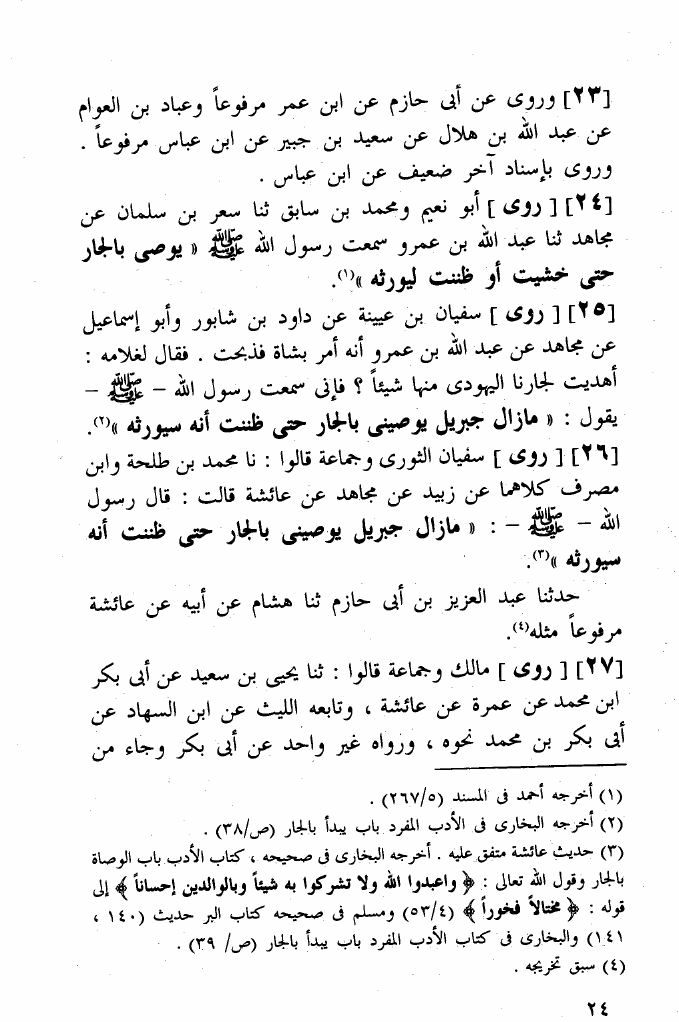 [٢٣] وروى عن أبى حازم عن ابن عمر مرفوعاً وعباد بن العوام
عن عبد الله بن هلال عن سعيد بن جبير عن ابن عباس مرفوعاً .
وروى بإسناد آخر ضعيف عن ابن عباس .
[٢٤] [ روى ] أبو نعيم ومحمد بن سابق ثنا سعر بن سلمان عن
مجاهد ثنا عبد الله بن عمرو سمعت رسول الله ﷺ « يوصى بالجار
حتى خشيت أو ظننت ليورثه »(١).
[٢٥] [ روى ] سفيان بن عيينة عن داود بن شابور وأبو إسماعيل
عن مجاهد عن عبد الله بن عمرو أنه أمر بشاة فذبحت . فقال لغلامه :
أهديت لجارنا اليهودى منها شيئاً ؟ فإنى سمعت رسول الله – ﷺ –
يقول : « مازال جبريل يوصينى بالجار حتى ظننت أنه سيورثه »(٢).
[٢٦] [ روى ] سفيان الثورى وجماعة قالوا : نا محمد بن طلحة وابن
مصرف كلاهما عن زبيد عن مجاهد عن عائشة قالت : قال رسول
الله – ﷺ – : « مازال جبريل يوصينى بالجار حتى ظننت أنه
سيورثه »(٣).
حدثنا عبد العزيز بن أبى حازم ثنا هشام عن أبيه عن عائشة
مرفوعاً مثله(٤).
[٢٧] [ روى ] مالك وجماعة قالوا : ثنا يحيى بن سعيد عن أبى بكر
ابن محمد عن عمرة عن عائشة ، وتابعه الليث عن ابن السهاد عن
أبى بكر بن محمد نحوه ، ورواه غير واحد عن أبى بكر وجاء من
(١) أخرجه أحمد فى المسند (٢٦٧/٥) .
(٢) أخرجه البخارى فى الأدب المفرد باب يبدأ بالجار (ص/٣٨) .
(٣) حديث عائشة متفق عليه . أخرجه البخارى فى صحيحه ، كتاب الأدب باب الوصاة
بالجار وقول الله تعالى : ﴿ واعبدوا الله ولا تشركوا به شيئاً وبالوالدين إحساناً ﴾ إلى
قوله : ﴿ مختالاً فخوراً ﴾ (٥٣/٤) ومسلم فى صحيحه كتاب البر حديث (١٤٠ ،
١٤١) والبخارى فى كتاب الأدب المفرد باب يبدأ بالجار (ص/ ٣٩) .
(٤) سبق تخريجه .
٢٤